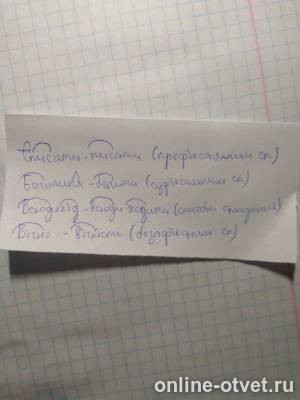 Вписати - писати (префіксальним сп)
Бачитися - бачити (суфіксальним сп)
Всюдихід - всюди ходити (способом складання)
Вічно - вічність (безафіксним сп)
online-otvet.ru